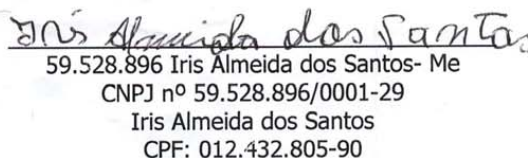 Iris Almeida dos Santos
59.528.896 Iris Almeida dos Santos- Me
CNPJ nº 59.528.896/0001-29
Iris Almeida dos Santos
CPF: 012.432.805-90